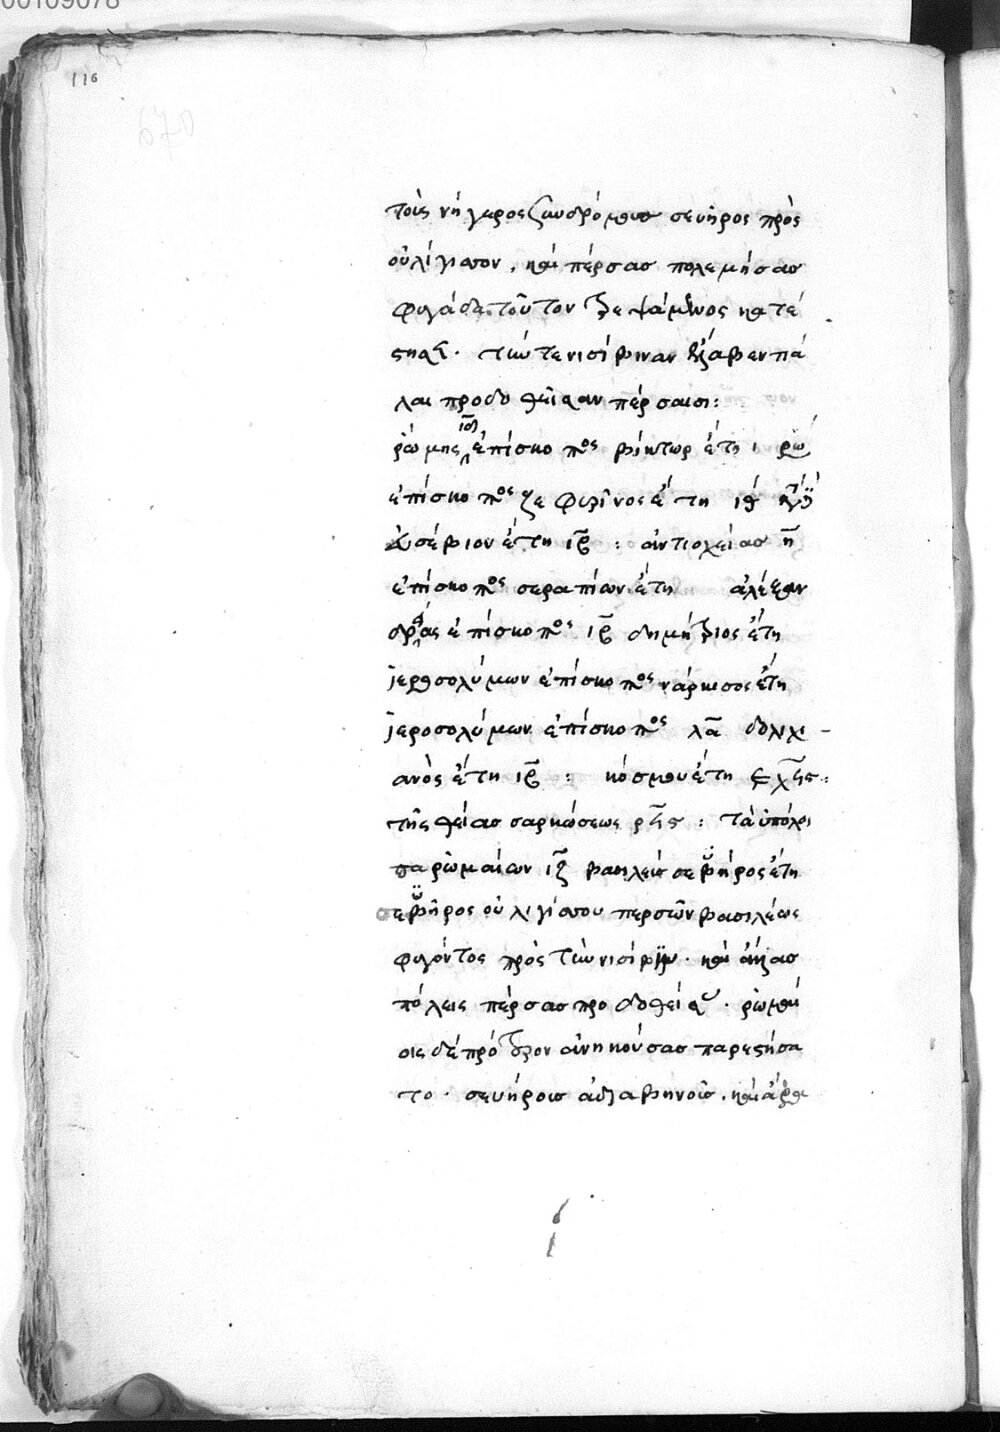 00109078
116
670
τοὺς νήγερος συνδρόμους σευῆρος πρὸς
οὐλίγισον, καὶ πέρσας πολεμήσας
φυγάδα τοῦτον τρεψάμενος κατέ
στησε. τήν τε νισίβιναν ἐξέλαβεν πά
λαι προδοθεῖσαν πέρσαισι:
ῥώμης ἐπίσκοπος βίκτωρ ἔτη ι ῥώ
ἐπίσκοπος ζεφυρῖνος ἔτη ιθ
εὐσέβιον ἔτη ιβ : ἀντιοχείας η
ἐπίσκοπος σεραπίων ἔτη ἀλεξαν
δρείας ἐπίσκοπος ιβ δημήτριος ἔτη
ἱεροσολύμων ἐπίσκοπος νάρκισος ἔτη
ἱεροσολύμων ἐπίσκοπος λα δολιχι-
ανὸς ἔτη ιβ : κόσμου ἔτη εχ
τῆς θείας σαρκώσεως ρ : τὰ ὑπόλοι
πα ῥωμαίων ιζ βασιλεὺς σεβῆρος ἔτη
σεβῆρος οὐλιγίσου περσῶν βασιλέως
φυγόντος πρὸς τὴν νισίβιν. καὶ
πόλεις πέρσας προδοθείσας. ῥωμαί
οις δὲ πρότερον ἀνηκούσας παρεστήσα
το. σευῆρος ἀδιαβηνοῖς, καὶ ἄραψι